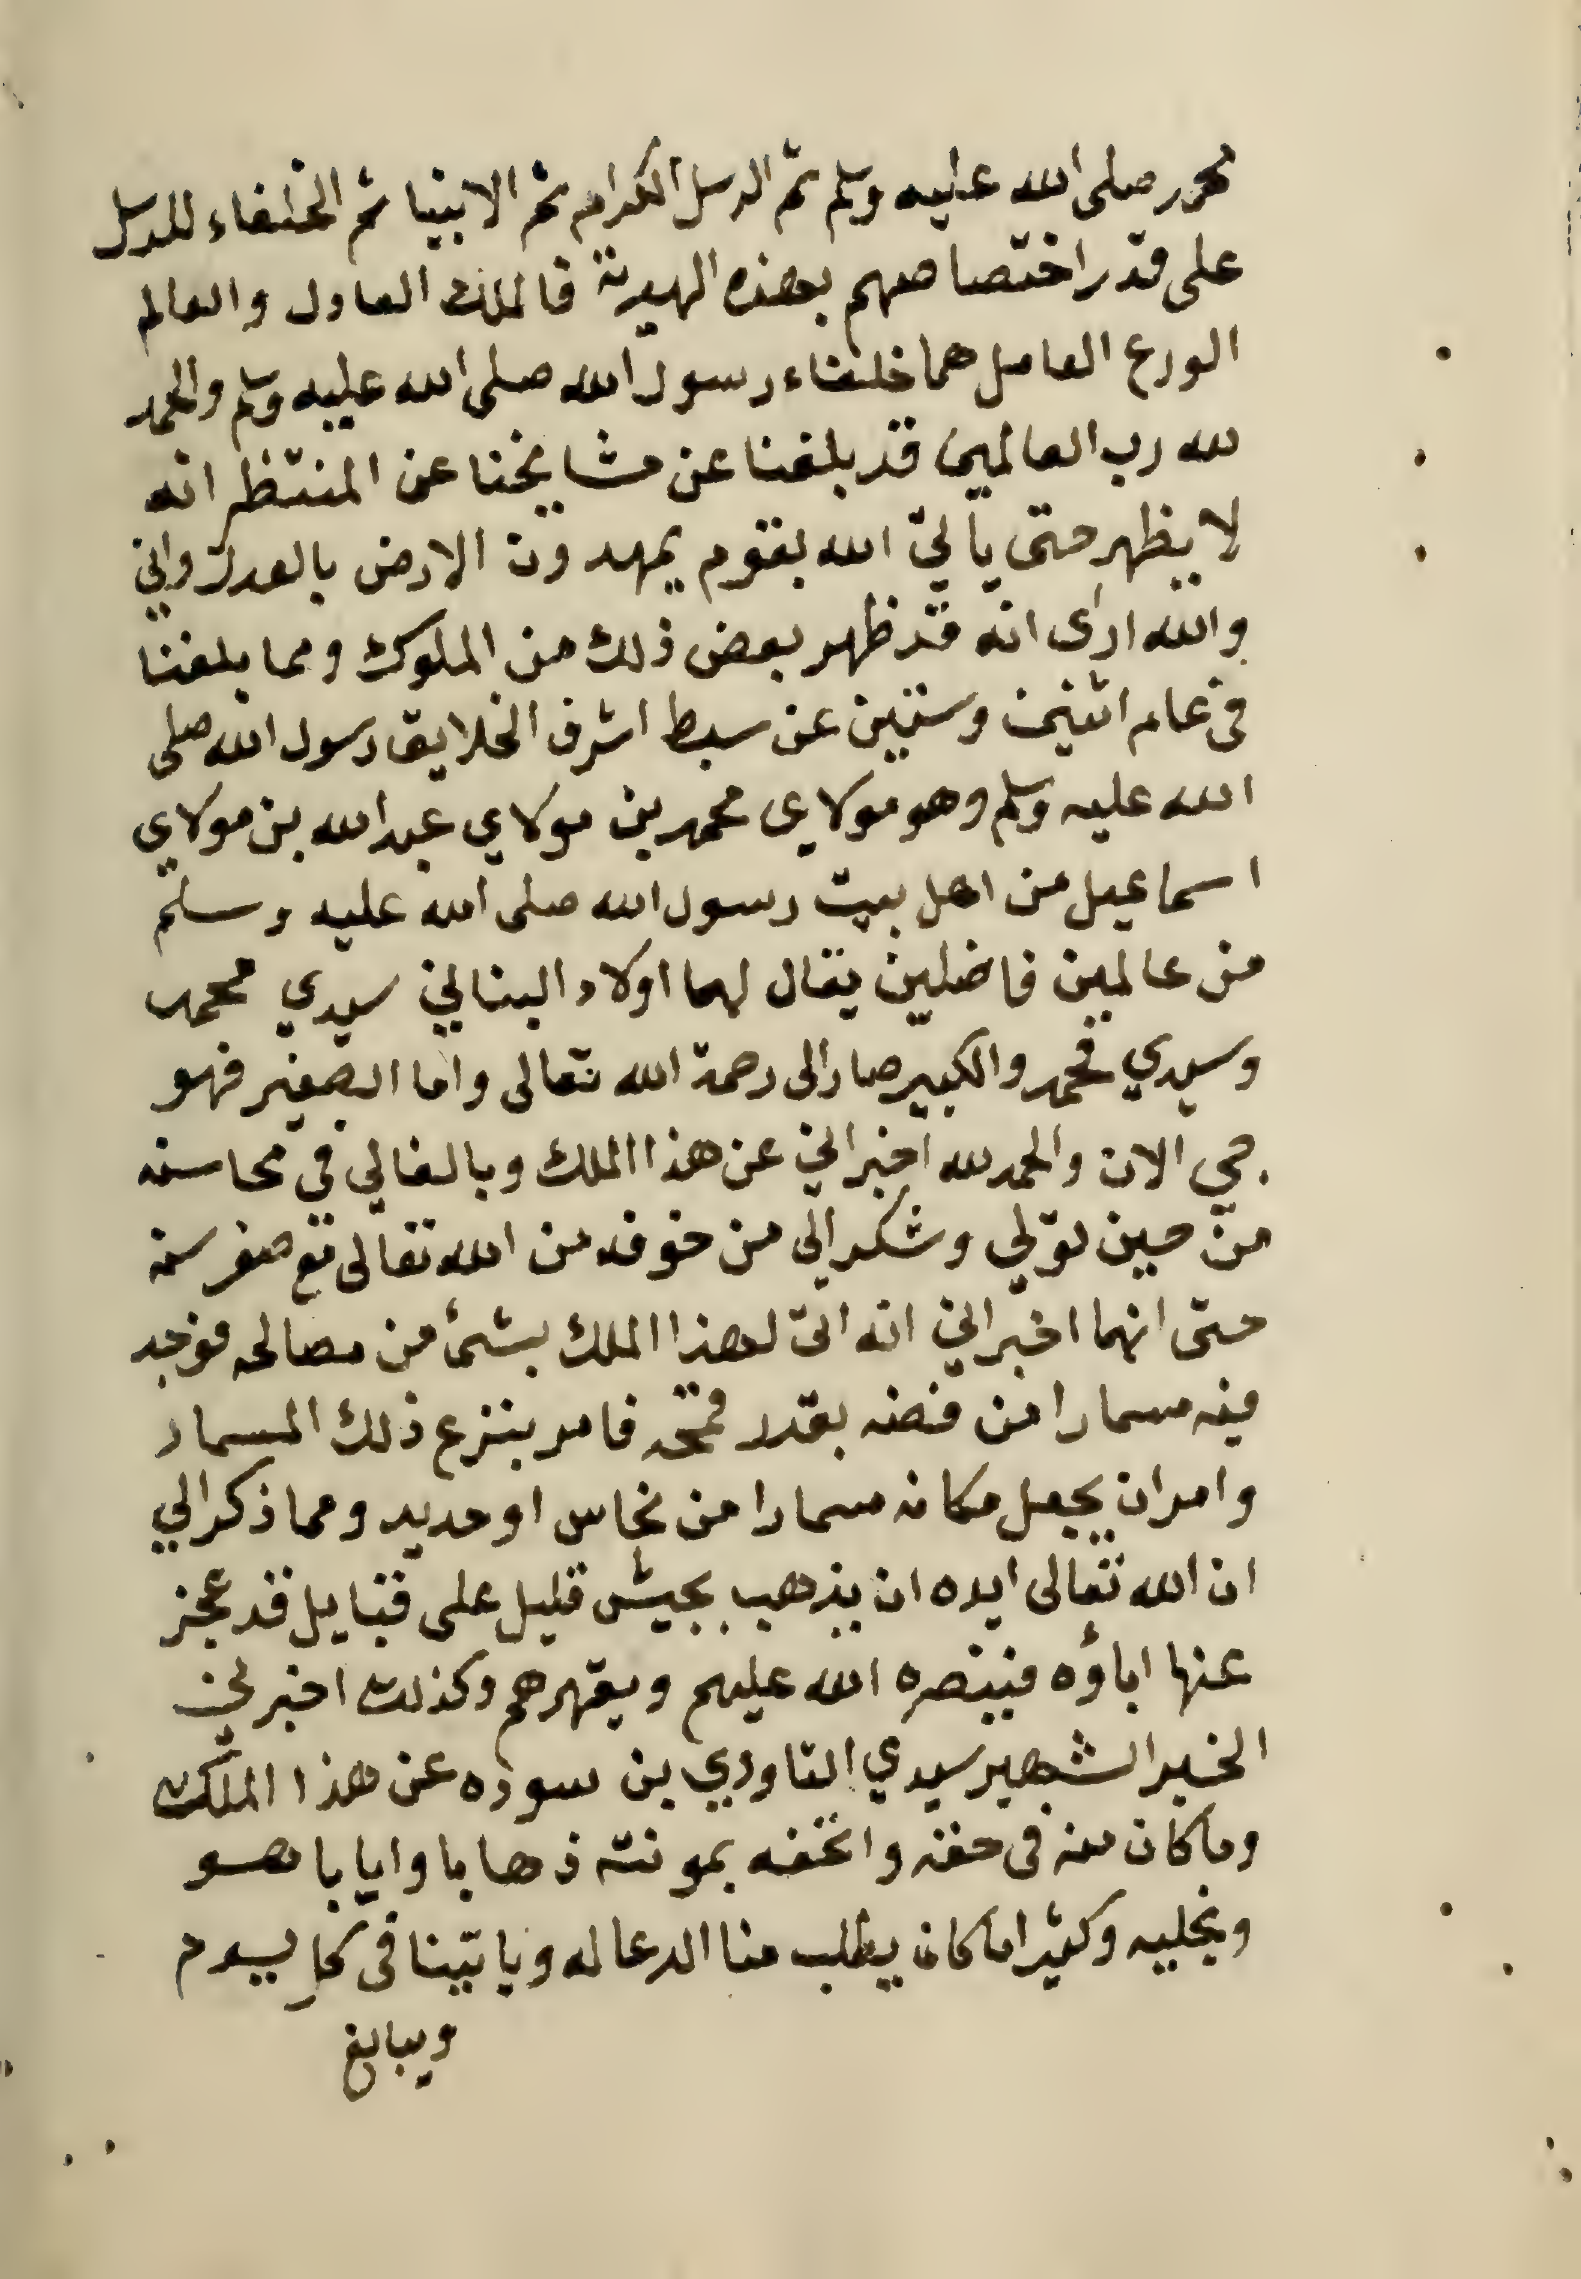 محمد صلى الله عليه وسلم ثم الرسل الكرام ثم الانبيا ثم الخلفاء للرسل
على قدر اختصاصهم بهذه الهدية فالملك العادل والعالم
الورع العامل هما خلفاء رسول الله صلى الله عليه وسلم والحمد
لله رب العالمين قد بلغنا عن مشايخنا عن المنتظر انه
لا يظهر حتى ياتي الله بقوم يمهدون الارض بالعدل واني
والله ارى انه قد ظهر بعض ذلك من الملوك ومما بلغنا
في عام اثنين وستين عن سبط اشرف الخلايق رسول الله صلى
الله عليه وسلم وهو مولاي محمد بن مولاي عبد الله بن مولاي
اسماعيل من اهل بيت رسول الله صلى الله عليه وسلم
من عالمين فاضلين يقال لهما اولاد البناني سيدي محمد
وسيدي محمد والكبير صار الى رحمة الله تعالى واما الصغير فهو
حي الان والحمد لله اخبراني عن هذا الملك وبالغا لي في محاسنه
من حين تولي وشكرا لي من خوفه من الله تعالى مع صغر سنه
حتى انهما اخبراني انه اتى لهذا الملك بشئ من مصالحه فوجد
فيه مسمارا من فضه بقدر قمحه فامر بنزع ذلك المسمار
وامر ان يجعل مكانه مسمارا من نحاس او حديد ومما ذكرا لي
ان الله تعالى ايده ان يذهب بجيش قليل على قبايل قد عجز
عنها اباؤه فينصره الله عليهم ويقهرهم وكذلك اخبرني
الخبير الشهير سيدي التاودي بن سوده عن هذا الملك
وما كان منه في حقه واتحفه بمونته ذهابا وايابا هو
ونجليه وكثيرا ما كان يطلب منا الدعا له وياتينا في كل يوم
ويبالغ